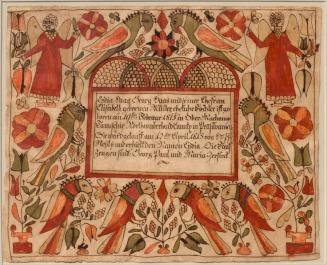 Lidia Haag Georg Haag und seiner Ehefrau
Elisabeth gebornen Müller eheliche Tochter ist ge
boren am 19ten Februar 1815 in Ober
Taunschip Northumberland Caunty in Pensilvanien
Sie ward getauft am 17ten April 1815 von
und erhielt den Namen Lidia. Die Tauf
Zeugen sind Georg Paul und Maria